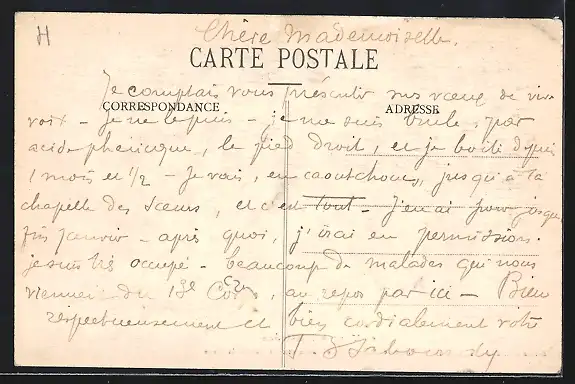 H
Chère Mademoiselle.
CARTE POSTALE
Je comptais vous présenter mes vœux de vive
CORRESPONDANCE
ADRESSE
voix – Je ne le puis – je me suis brulé, par
acide phénique, le pied droit, et je boite depuis
1 mois et 1/2 – Je vais, en caoutchouc, jusqu'à la
chapelle des Sœurs, et c'est tout – J'en ai pour jusque
fin Janvier – après quoi, j'irai en permission.
je suis très occupé – beaucoup de malades qui nous
viennent du 13e Corps, au repos par ici – Bien
respectueusement et bien cordialement votre